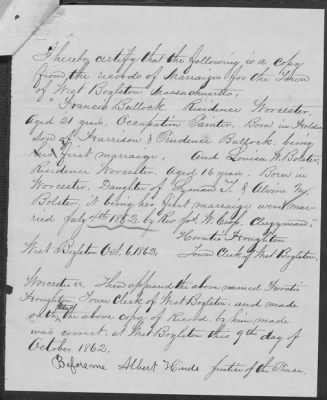 I hereby certify that the following is a copy
from the records of Marraiges for the Town
of West Boylston Massachusetts,
"Francis Bullock Residence Worcester,
Aged 21 years. Occupation Painter. Born in
son of Harrison & Prudence Bullock. being
his first marraige. And Louisa W. Bolster,
Residence Worcester. Aged 16 years. Born in
Worcester. Daughter of Lyman T. &
Bolster, it being her first marraige were mar-
ried July 4th 1862. by Rev. W. Clergyman."
Houghton
West Boylston Oct. 6, 1862. Town Clerk of West Boylston.
Worcester Then appeared the above named
Houghton Town Clerk of West Boylston, and made
oath the above copy of Record by him made
was correct, at West Boylston this 9th day of
October 1862.
Before me Albert Hinds Justice of the Peace.